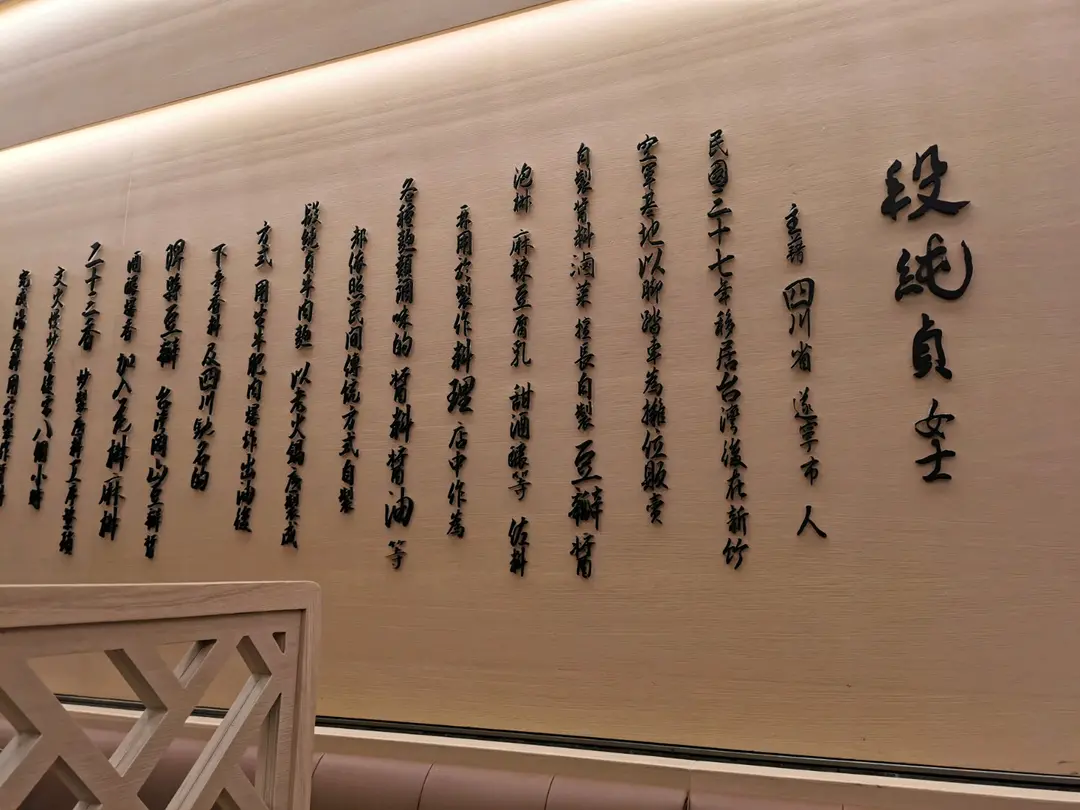 段純貞女士
主籍 四川省 遂寧市 人
民國三十七年移居台灣後在新竹
空軍基地以脚踏車為攤位販賣
自製醬料滷菜擅長自製豆瓣醬
泡椒 麻辣豆腐乳 甜酒釀等 佐料
再用於製作料理店中作為
各種麵類調味的醬料醬油等
都依照民間傳統方式自製
段純貞牛肉麵 以老火鍋底製成
方式 用生牛肥肉爆炸出油後
下辛香料及四川知名的
郫縣豆瓣 台灣岡山豆瓣醬
酒釀爆香 加入花椒麻椒
二十三香 炒製底料工序繁瑣
文火慢炒 八個小時
完成湯底料用於製作